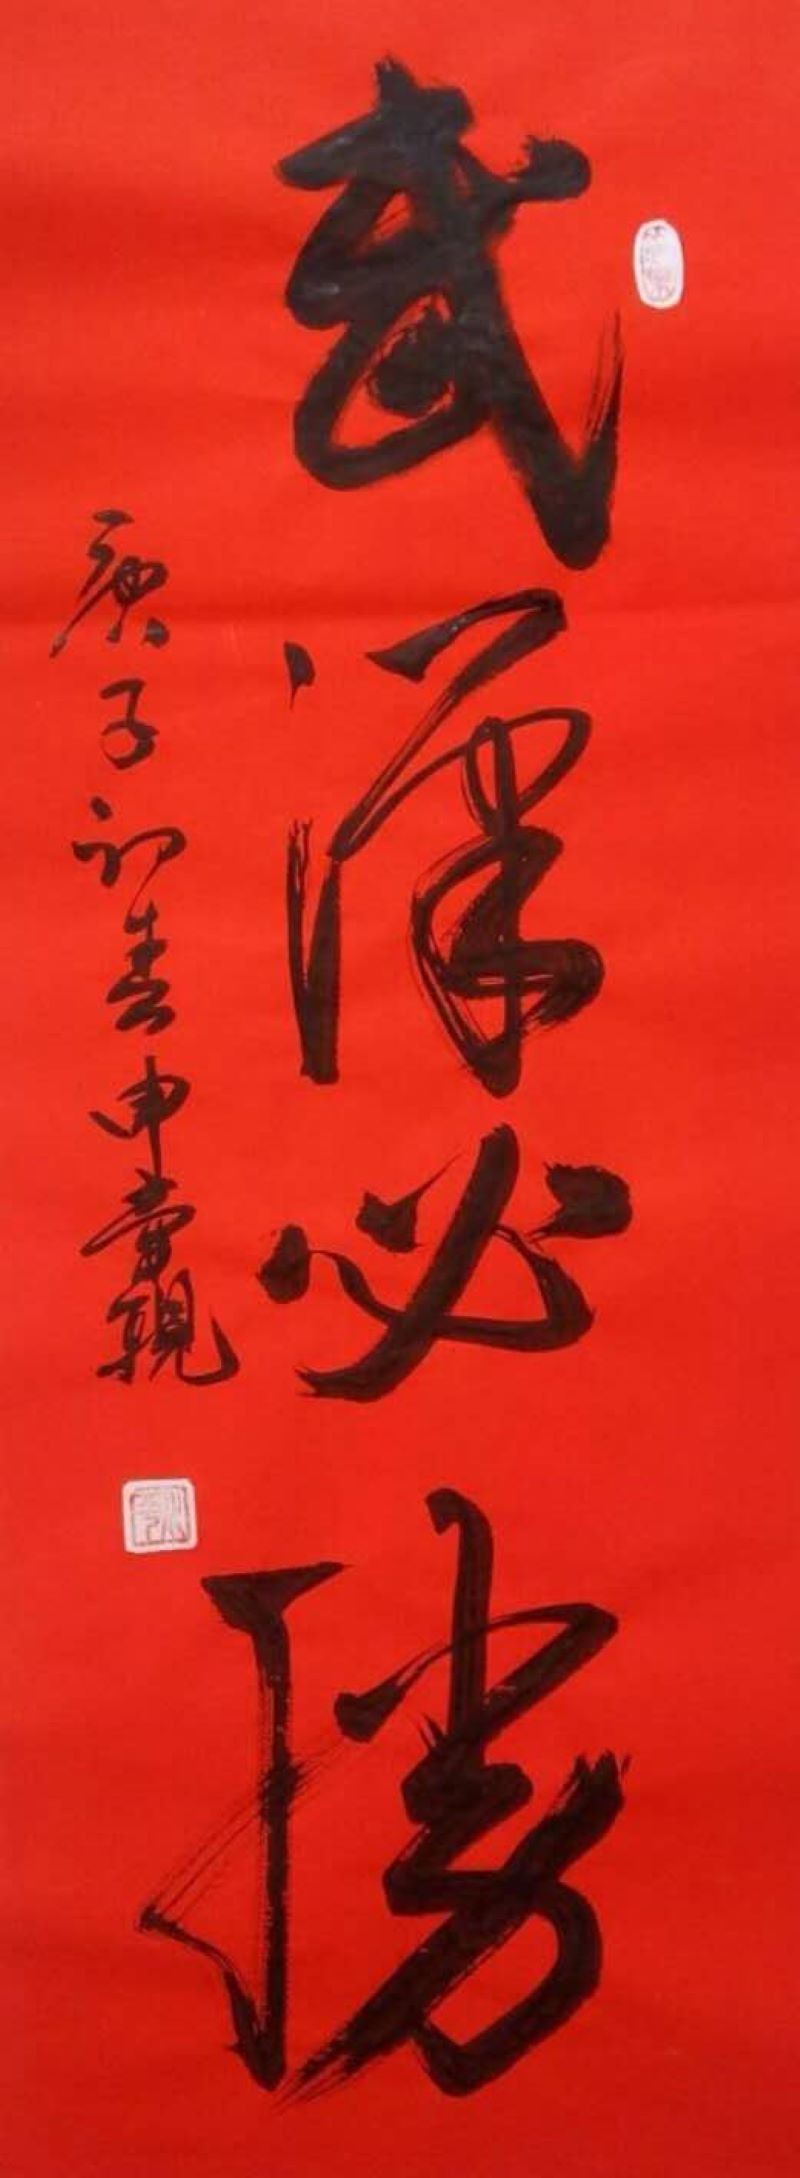 武漢必勝
庚子初春申當親